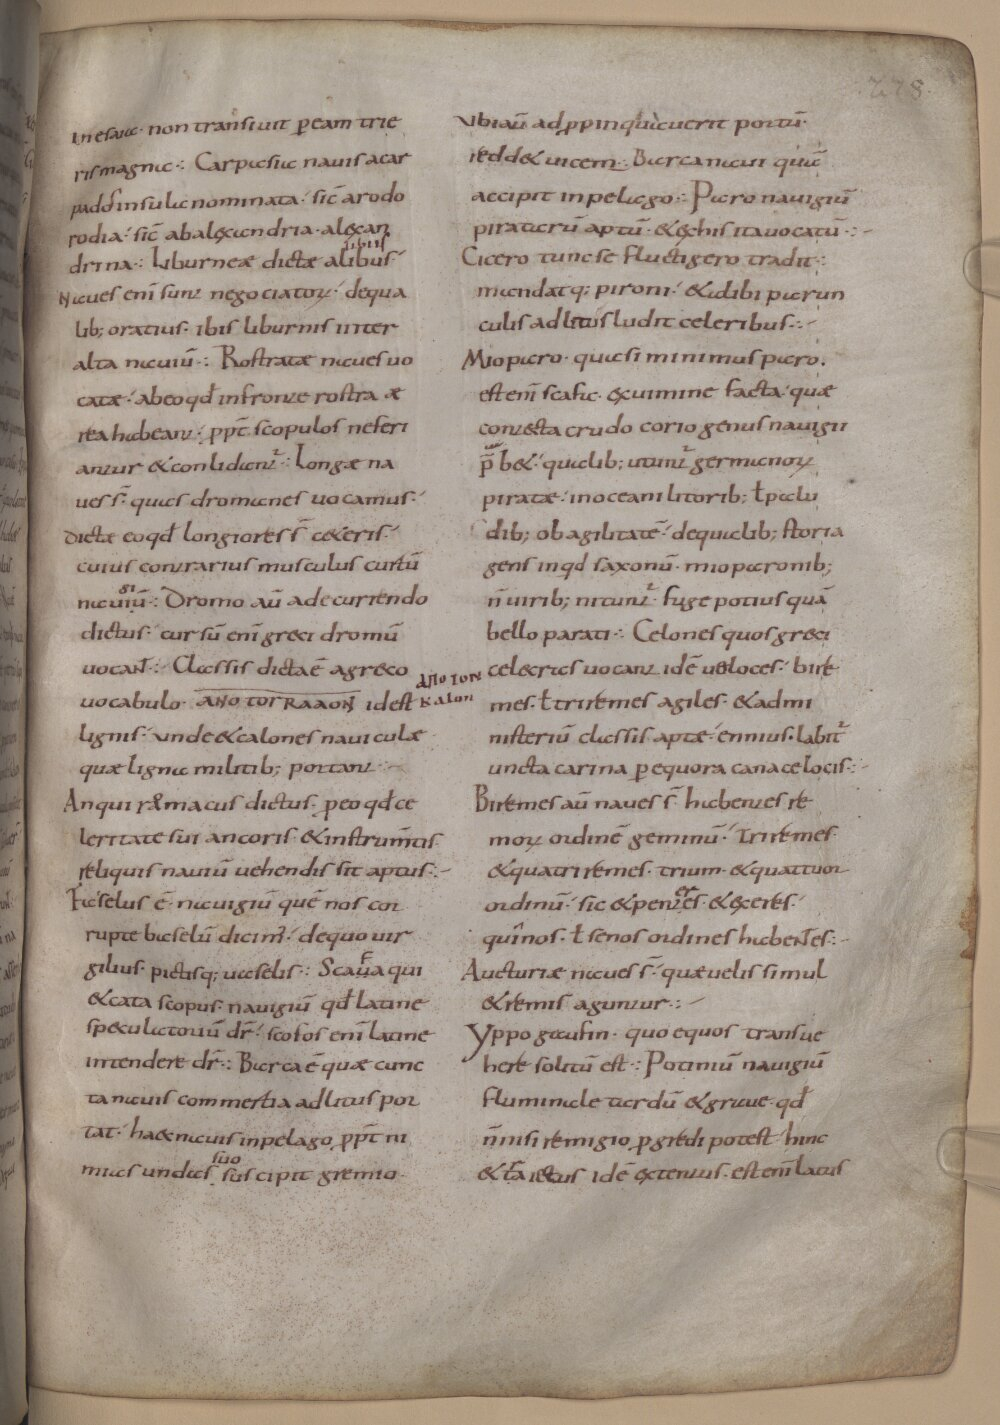 278
in esaic · non transiuit p̲ eam trie
ris magna ·:· Carpasia nauis a car
pado insula nominata · sic̄ a rodo
rodia · sic̄ ab alexandria · alexan
drina ·:· Liburneæ dictæ a libus
libiis
Naues enī sunt negociatoꝝ · de qua
lib; oratius · ibis liburnis inter
alta nauiū ·:· Rostratæ naues uo
catæ · ab eo qđ in fronte rostra æ
rea habeant · p̲p̲t̄ scopulos ne feri
antur & conlidant᷑ ·:· Longæ na
ues s̄ · quas dromones uocamus ·
Dictæ eo qđ longiores s̄ ceteris ·
cuius contrarius musculus curtū
nauiū ·:· Dromo aū a decurrendo
gi
dictus · cursū enī greci dromū
uocant ·:· Classis dicta ē a greco
uocabulo · ΑΝΟ ΤΟΓ ΚΑΛΟΝ id est
ΑΠΟ ΤΟΝ
ΚΑΛΟΝ
lignis · unde & calones nauiculæ
quæ ligna militib; portant ·:-
Anquiromacus dictus · p̲ eo qđ ce
leritate sui ancoris · & instrum̄tis ·
reliquis nauiū uehendis sit aptus ·:-
Faselus ē · nauigiū quē nos cor
rupte baselū dicim᷒ · de quo uir
gilius · pictisq; uaselis ·:· Scaua qui
f
& cata scopus · nauigiū qđ latine
speculatoriū dr̄ · scofos enī latine
intendere dr̄ ·:· Barca ē quæ cunc
ta nauis commertia ad litus por
tat · hac nauis in pelago p̲p̲t̄ ni
mias undas suscipit gremio ·
suo
Vbi aū ad p̲p̲inquauerit portū ·
redd& uicem ·:· Barca naui quā
accipit in pelago ·:· Paro nauigiū
pirataru᷒ aptū · & ex his ita uocatū ·:-
Cicero tunc se fluctigero tradit ·:·
mandatq; pironi · & idibi parun
culis ad litus ludit celeribus ·:-
Mioparo · quasi minimus paro ·
est enī scafa · ex uimine facta · quæ
contecta crudo corio genus nauigii
p̄b& · qualib; utunt᷑ germanoꝝ
piratæ · in oceani litorib; ł palu
dib; ob agilitatē · de qualib; storia
gens inqđ saxonū · mioparonib;
n̄ uirib; nitunt᷑ · fuge potius quā
bello parati ·:· Celones quos greci
celecras uocant idē ueloces · bire
mes · ł triremes agiles · & ad mi
nisteriū classis aptæ · ennius · labit᷑
uncta carina p̲ equora cana celocis ·:-
Biremes aū naues s̄ habentes re
moꝝ ordinē geminū · Triremes
& quatriremes · trium · & quattuor
ordinū · sic & penteres · & exeres ·
quinos · ł senos ordines habentes ·:-
Aucturiæ naues s̄ · quæ uelis simul
& remis aguntur ·:-
Yppogaufin · quo equos transue
here solitū est ·:· Potiniū nauigiū
fluminale tardū & graue · qđ
n̄ nisi remigio p̲gredi potest · hinc
idē extenus · est enī latus